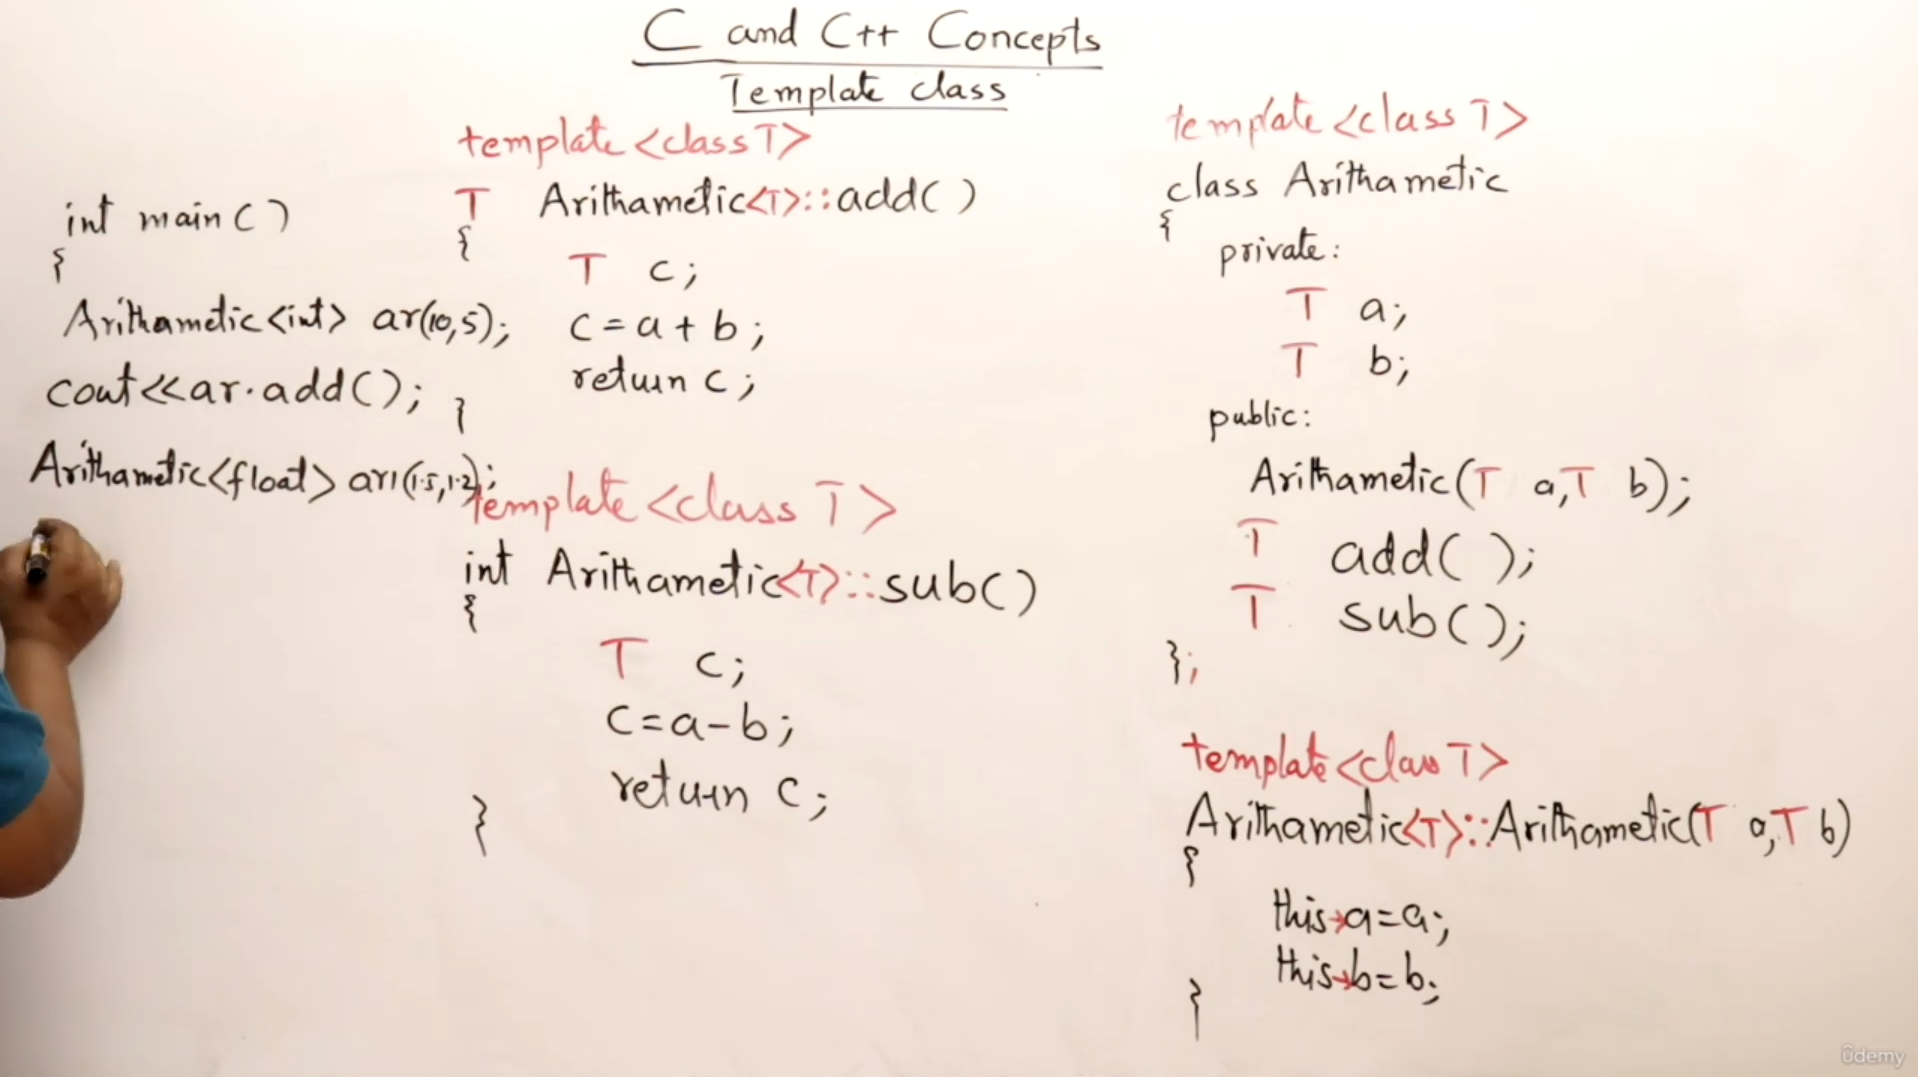 C and C++ Concepts
Template class
int main()
{
Arithametic<int> ar(10,5);
cout<<ar.add();
Arithametic<float> ar1(1.5,1.2);
template<class T>
T Arithametic<T>::add()
{
T c;
c=a+b;
return c;
}
template<class T>
int Arithametic<T>::sub()
{
T c;
c=a-b;
return c;
}
template<class T>
class Arithametic
{
private:
T a;
T b;
public:
Arithametic(T a,T b);
T add();
T sub();
};
template<class T>
Arithametic<T>::Arithametic(T a,T b)
{
this→a=a;
this→b=b;
}
ûdemy